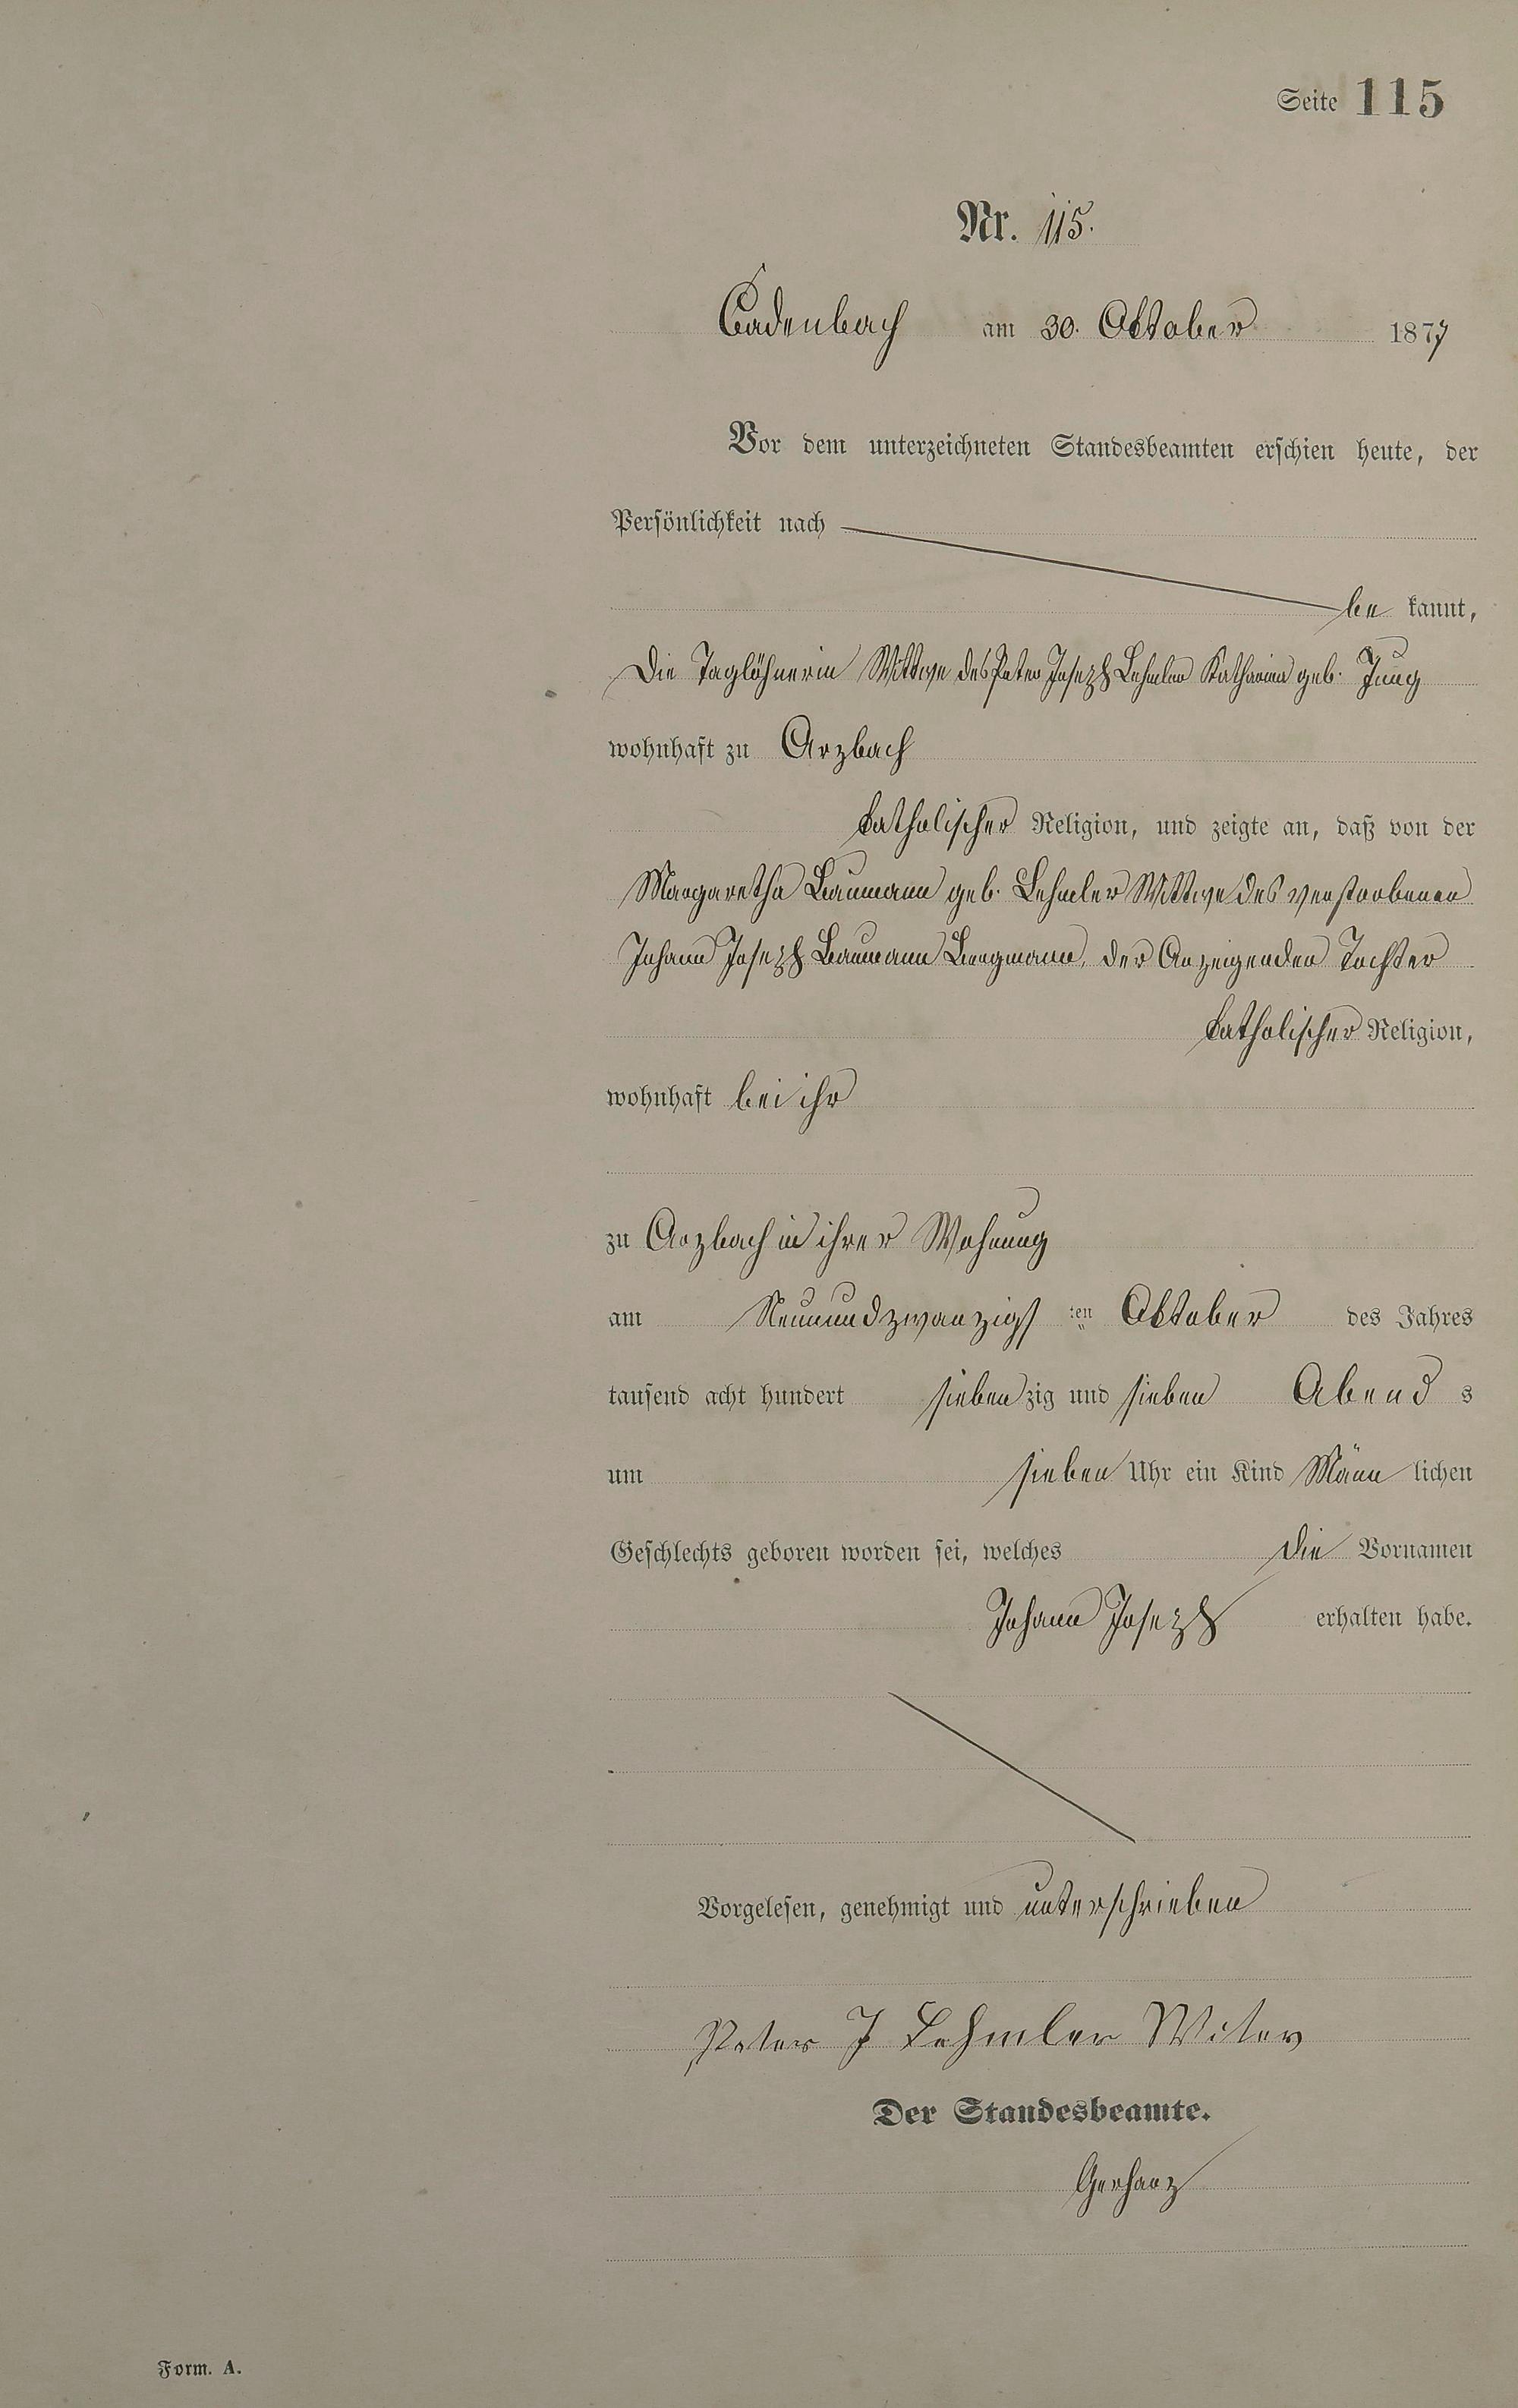 Seite 115
Nr. 115.
Cadenbach am 30. Oktober 1877
Vor dem unterzeichneten Standesbeamten erschien heute, der
Persönlichkeit nach
be kannt,
die Taglöhnerin Wittwe des Peter Joseph Lehmler Katharina geb. Jung
wohnhaft zu Arzbach
katholischer Religion, und zeigte an, daß von der
Margaretha Baumann geb. Lehmler Wittwe des verstorbenen
Johann Joseph Baumann Bergmann, der Anzeigenden Tochter
katholischer Religion,
wohnhaft bei ihr
zu Arzbach in ihrer Wohnung
am Neunundzwanzigs ten Oktober des Jahres
tausend acht hundert sieben zig und sieben Abend s
um sieben Uhr ein Kind Männ lichen
Geschlechts geboren worden sei, welches die Vornamen
Johann Joseph erhalten habe.
Vorgelesen, genehmigt und unterschrieben
Peter J Lehmler Witev
Der Standesbeamte.
Gerharz
Form. A.